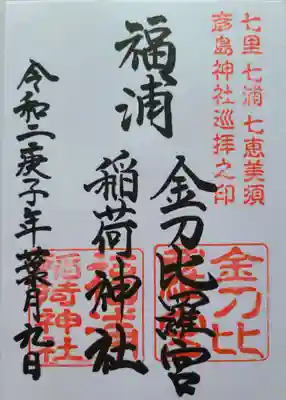 七里七浦七恵美須
彦島神社巡拝之印
福浦
金刀比羅宮
稲荷神社
令和二庚子年葉月九日
金刀比